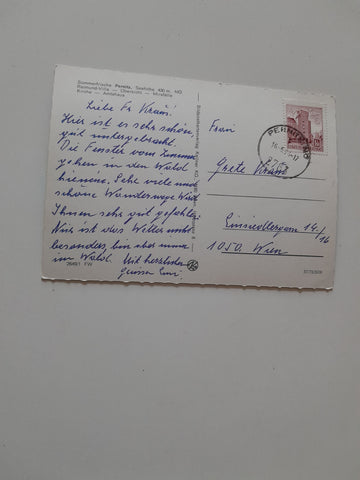 Sommerfrische Pernitz, Seehöhe 430 m, NÖ
Raimund-Villa — Übersicht — Mirafälle
Kirche — Amtshaus
Liebe Fr. Kraus!
Hier ist es sehr schön,
gut untergebracht.
Die Fenster vom Zimmer
gehen in den Wald
hinein. Sehr viele und
schöne Wanderwege. Wird
Ihnen sehr gut gefallen.
Nur ist das Wetter nicht
besonders, bin aber immer
im Wald. Mit herzlichen
Grüssen
Frau
Grete Kraus
Einsiedlergasse 14/16
1050 Wien
PERNITZ
2763